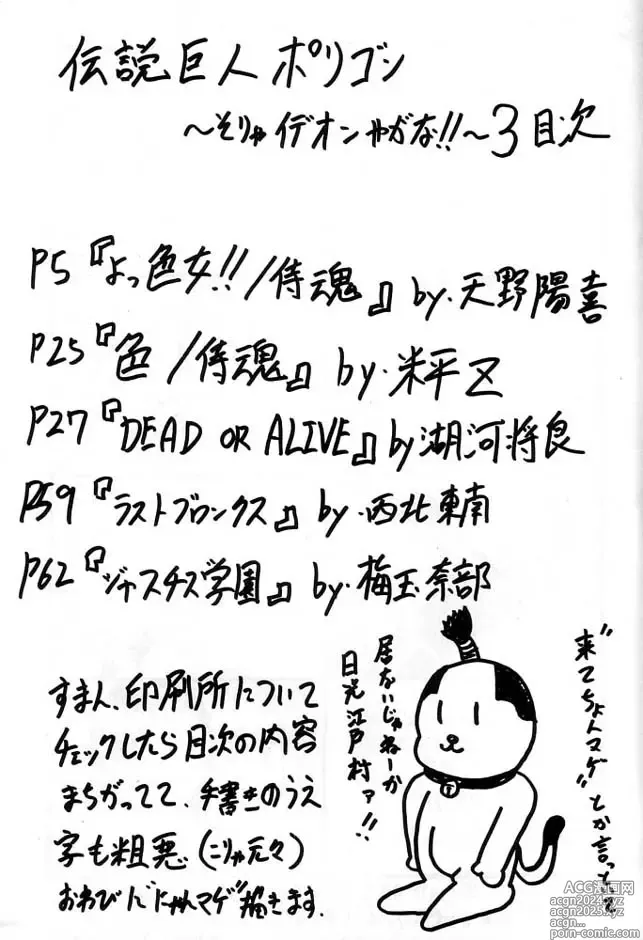 伝説巨人ポリゴン
～そりゃイデオンやがな!!～3目次
P5『よっ色女!!/侍魂』by.天野陽喜
P25『色/侍魂』by.米平Z
P27『DEAD OR ALIVE』by湖河将良
P59『ラストブロンクス』by.西北東南
P62『ジャスチス学園』by.梅玉奈部
すまん、印刷所について
チェックしたら目次の内容
まちがってて、手書きのうえ
字も粗悪(こりゃ元々)
おわびに"にゃんマゲ"描きます.
"来てちょんマゲ"とか言っといて
居ないじゃねーか
日光江戸村ァ!!
ACG漫画网
acgn2024.xyz
acgn2025.xyz
acgn...
porn-comic.com